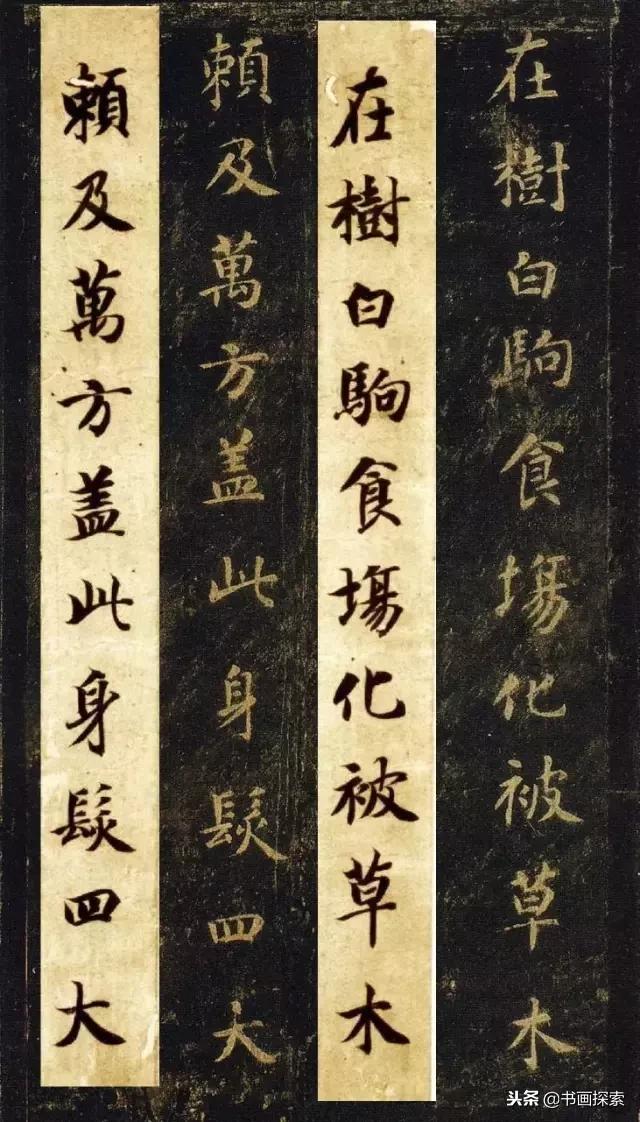 在樹白駒食塲化被草木
在樹白駒食塲化被草木
賴及萬方盖此身髮四大
賴及萬方盖此身髮四大
头条 @书画探索